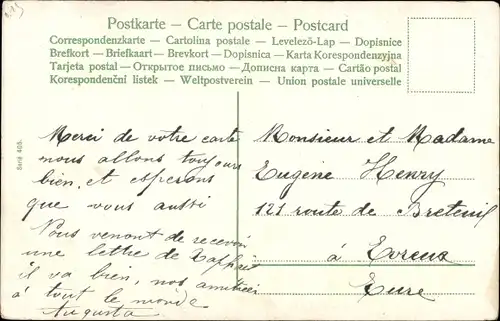 Postkarte — Carte postale — Postcard
Correspondenzkarte — Cartolina postale — Levelező-Lap — Dopisnice
Brefkort — Briefkaart — Brevkort — Dopisnica — Karta Korespondenzyjna
Tarjeta postal — Открытое письмо — Дописна карта — Cartão postal
Korespondenční listek — Weltpostverein — Union postale universelle
Serie 405.
Merci de votre carte
nous allons toujours
bien, et esperons
que vous aussi
Nous venont de recevoir
une lettre de
il va bien, nos amitiés
à tout le monde
Augusta
Monsieur et Madame
Eugène Henry
121 route de Breteuil
à Evreux
Eure